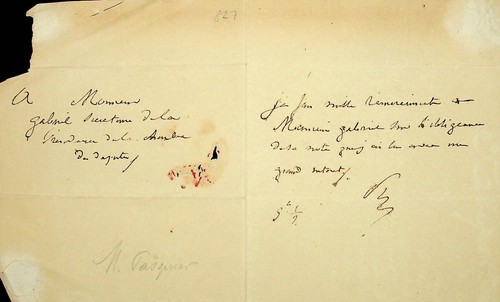 827
A Monsieur
gabriel Secretaire de la
Présidence de la chambre
des deputés
M. Pasquier
je fais mille remerciments a
Monsieur gabriel sur l'obligeance
de sa note que j'ai lu avec un
grand interet.